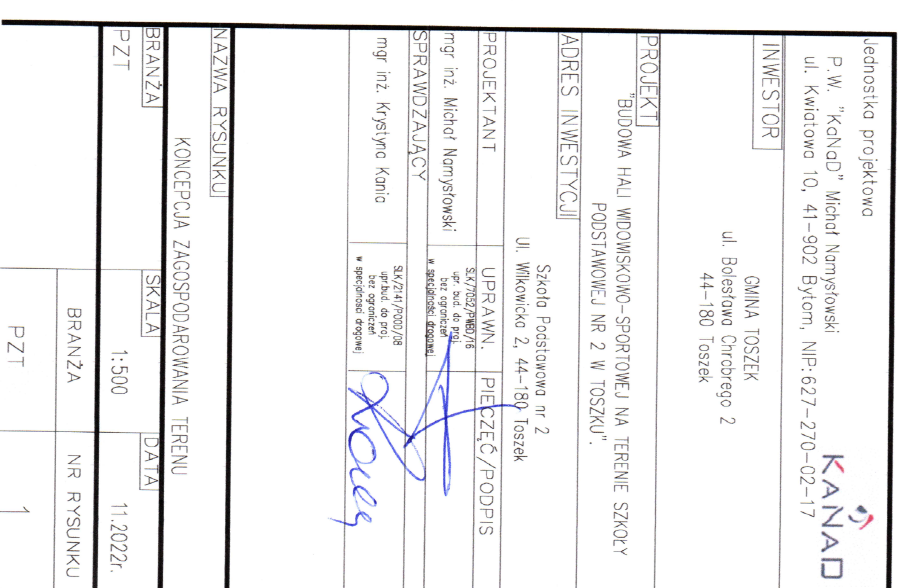 Jednostka projektowa
P.W. "KaNaD" Michał Namysłowski
ul. Kwiatowa 10, 41-902 Bytom, NIP:627-270-02-17
KANAD
INWESTOR
GMINA TOSZEK
ul. Bolesława Chrobrego 2
44-180 Toszek
PROJEKT
"BUDOWA HALI WIDOWISKOWO-SPORTOWEJ NA TERENIE SZKOŁY
PODSTAWOWEJ NR 2 W TOSZKU".
ADRES INWESTYCJI
Szkoła Podstawowa nr 2
Ul. Wilkowicka 2, 44-180 Toszek
PROJEKTANT UPRAWN. PIECZĘĆ/PODPIS
mgr inż. Michał Namysłowski
SLK/7052/PWBD/16
upr. bud. do proj.
bez ograniczeń
w specjalności drogowej
SPRAWDZAJĄCY
mgr inż. Krystyna Kania
SLK/2141/POOD/08
upr.bud. do proj.
bez ograniczeń
w specjalności drogowej
NAZWA RYSUNKU
KONCEPCJA ZAGOSPODAROWANIA TERENU
BRANŻA SKALA DATA
PZT 1:500 11.2022r.
BRANŻA NR RYSUNKU
PZT 1